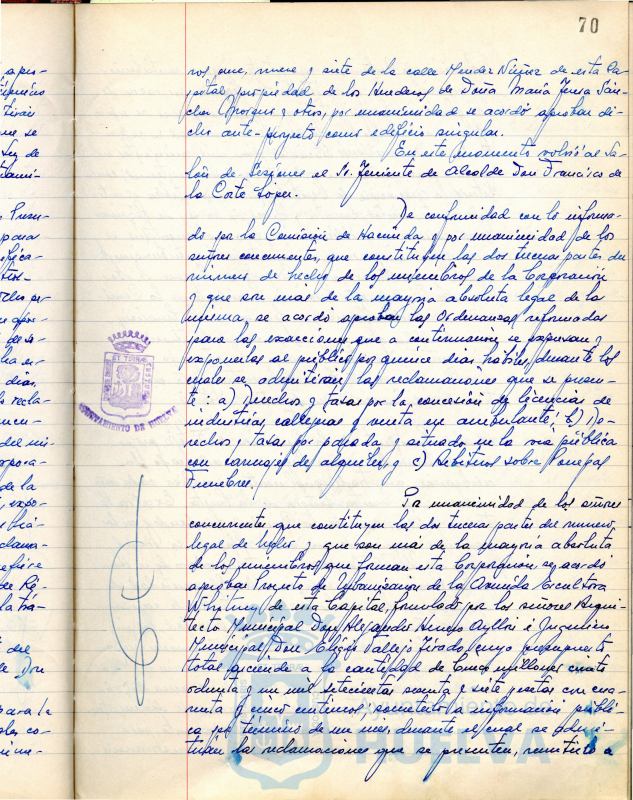 70
ros, nueve y siete de la calle Mendez Núñez de esta Ca-
pital, propiedad de los Herederos de Doña María Teresa Sán-
chez Morgues y otros, por unanimidad se acordó aprobar di-
cho ante-proyecto como edificio singular.
En este momento volvió al Sa-
lón de Sesiones el Sr. Teniente de Alcalde Don Francisco de
la Corte López.
De conformidad con lo informa-
do por la Comisión de Hacienda y por unanimidad de los
señores concurrentes, que constituyen las dos terceras partes del
número de hecho de los miembros de la Corporación
y que son más de la mayoría absoluta legal de la
misma, se acordó aprobar las Ordenanzas reformadas
para las exacciones que a continuación se expresan y
exponerlas al público por quince días hábiles, durante los
cuales se admitirán las reclamaciones que se presen-
te: a) Derechos y tasas por la concesión de licencias de
industrias callejeras y venta en ambulante; b) De-
rechos y tasas por parada y situado en la vía pública
con carruajes de alquiler, y c) Arbitrios sobre Pompas
Fúnebres.
Por unanimidad de los señores
concurrentes que constituyen las dos terceras partes del número
legal de hecho y que son más de la mayoría absoluta
de los miembros que forman esta Corporación, se acordó
aprobar Proyecto de Urbanización de la Avenida Escultora
Whitney de esta Capital, formulado por los señores Arqui-
tecto Municipal Don Alejandro Herrero Ayllón é Ingeniero
Municipal Don Eligio Vallejo Tirado, cuyo presupuesto
total asciende a la cantidad de Cinco millones ciento
ochenta y un mil setecientas sesenta y siete pesetas con cua-
renta y cinco céntimos, someterlo a información públi-
ca por término de un mes, durante el cual se admi-
tirán las reclamaciones que se presenten, remitirlo a
AYUNTAMIENTO DE HUELVA
HUELVA